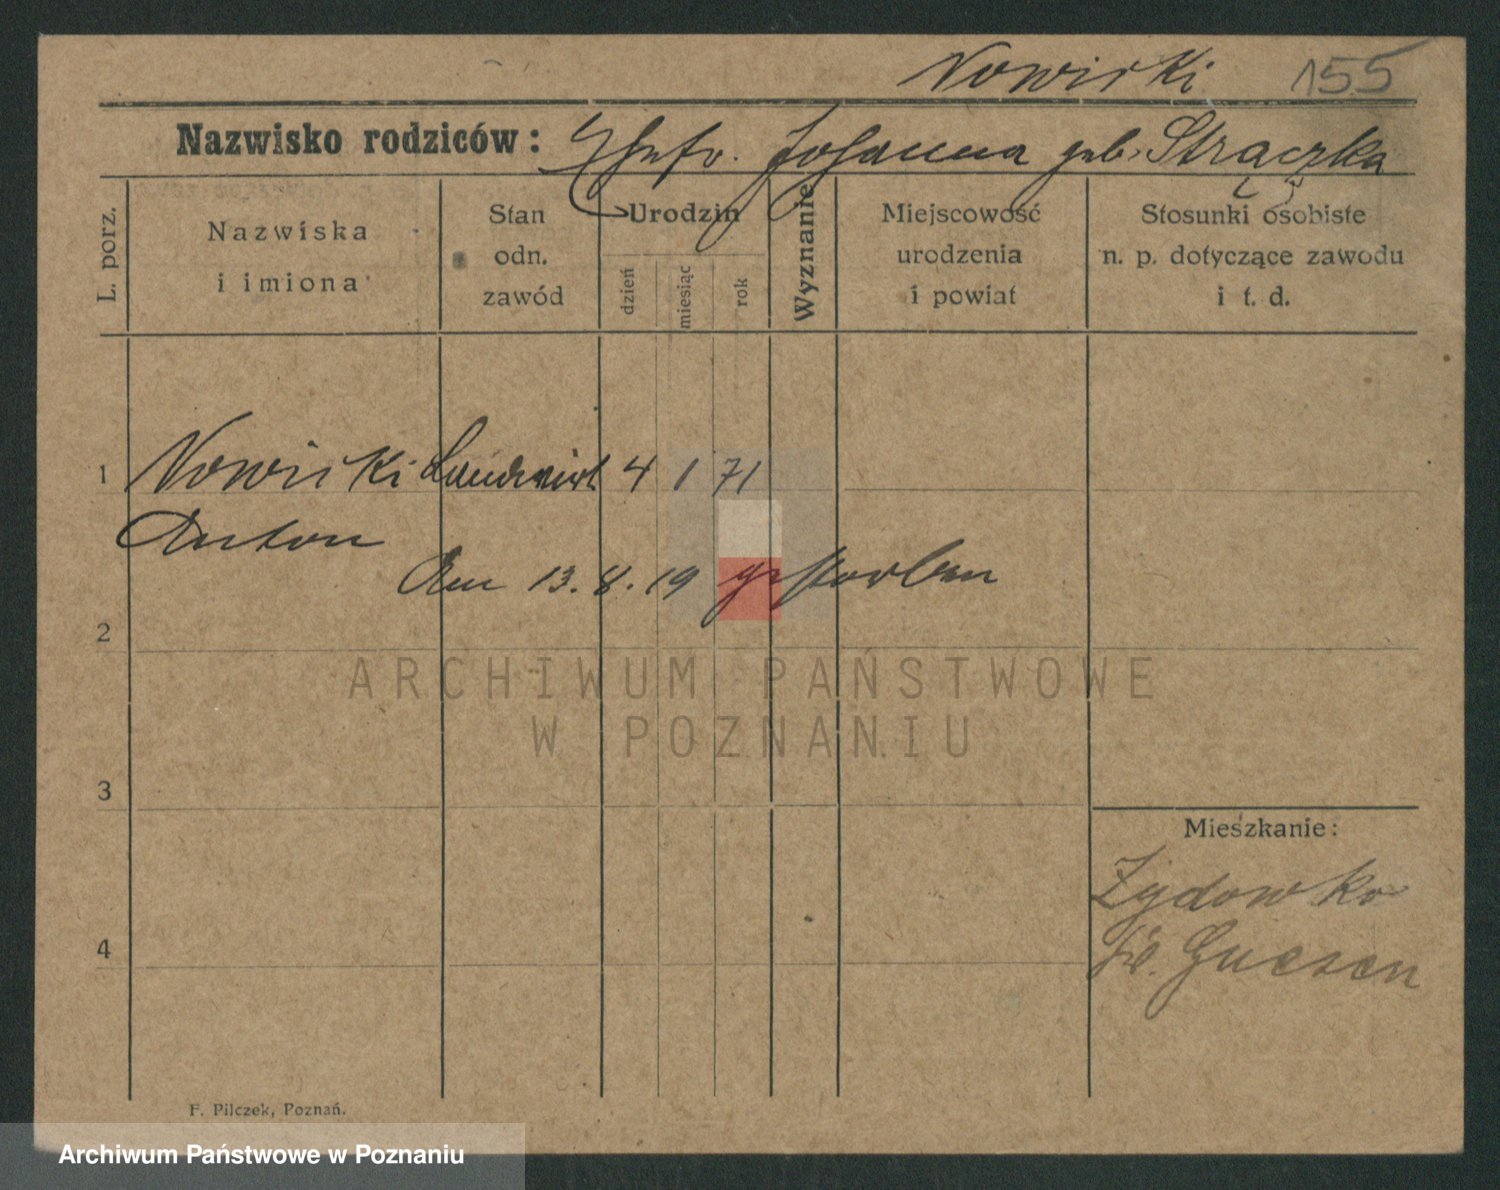 Nowiski 155
Nazwisko rodziców: Ehefr. Johanna geb. Strączka
L. porz.
Nazwiska
i imiona
Stan
odn.
zawód
Urodzin
dzień
miesiąc
rok
Wyznanie
Miejscowość
urodzenia
i powiat
Stosunki osobiste
n. p. dotyczące zawodu
i t. d.
1 Nowiski Landwirt 4 1 71
Anton
Am 13. 8. 19 gestorben
2
ARCHIWUM PAŃSTWOWE
W POZNANIU
3
Mieszkanie:
Zydowko
Kr. Gnesen
4
F. Pilczek, Poznań.
Archiwum Państwowe w Poznaniu